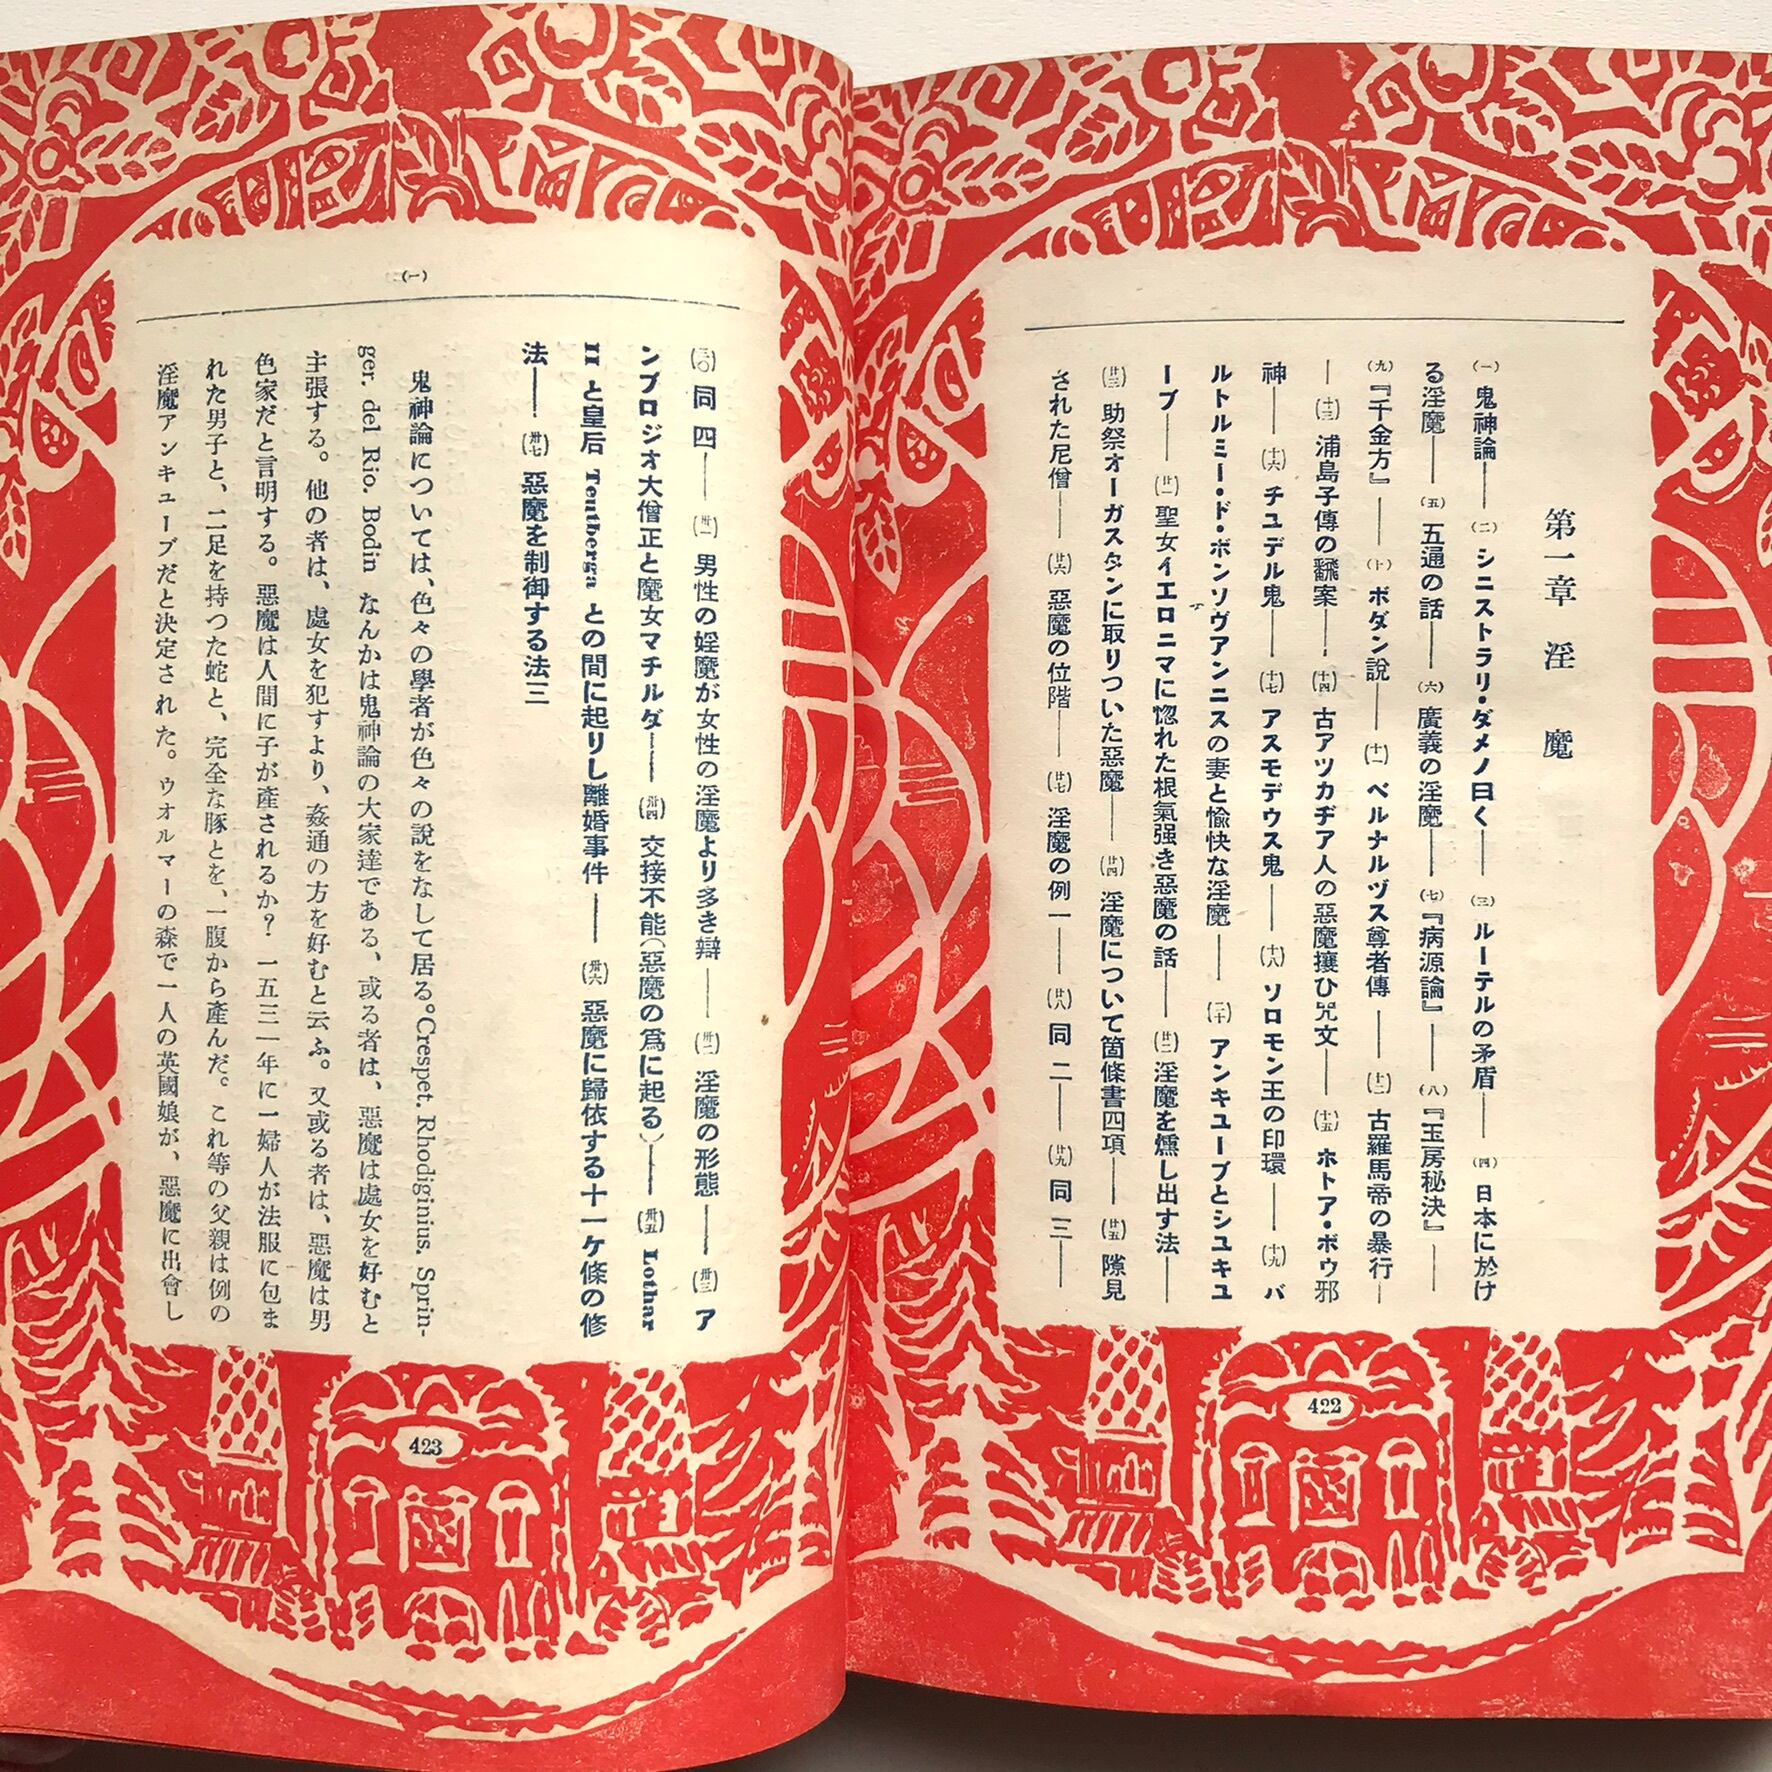 第一章　淫　魔
(一) 鬼神論── (二) シニストラリ・ダメノ曰く── (三) ルーテルの矛盾── (四) 日本に於け
る淫魔── (五) 五通の話── (六) 廣義の淫魔── (七)『病源論』── (八)『玉房秘決』──
(九)『千金方』── (十) ボダン說── (十一) ベルナルヅス尊者傳── (十二) 古羅馬帝の暴行─
─ (十三) 浦島子傳の飜案── (十四) 古アツカヂア人の惡魔攘ひ咒文── (十五) ホトア・ボウ邪
神── (十六) チユデル鬼── (十七) アスモデウス鬼── (十八) ソロモン王の印環── (十九) バ
ルトルミード・ボンソヴアンニスの妻と愉快な淫魔── (二十) アンキユーブとシユキユ
ーブ── (廿一) 聖女イエロニマに惚れた根氣强き惡魔の話── (廿二) 淫魔を燻し出す法──
(廿三) 助祭オーガスタンに取りついた惡魔── (廿四) 淫魔について箇條書四項── (廿五) 隙見
された尼僧── (廿六) 惡魔の位階── (廿七) 淫魔の例一── (廿八) 同二── (廿九) 同三──
422
(一)
(三〇) 同四── (卅一) 男性の婬魔が女性の淫魔より多き辯── (卅二) 淫魔の形態── (卅三) ア
ンブロジオ大僧正と魔女マチルダ── (卅四) 交接不能(惡魔の爲に起る)── (卅五) Lothar
II と皇后 Teutberga との間に起りし離婚事件── (卅六) 惡魔に歸依する十一ケ條の修
法── (卅七) 惡魔を制御する法三
鬼神論については、色々の學者が色々の說をなして居る。Crespet. Rhodiginius. Sprin-
ger. del Rio. Bodin なんかは鬼神論の大家達である、或る者は、惡魔は處女を好むと
主張する。他の者は、處女を犯すより、姦通の方を好むと云ふ。又或る者は、惡魔は男
色家だと言明する。惡魔は人間に子が產されるか？ 一五三一年に一婦人が法服に包ま
れた男子と、二足を持つた蛇と、完全な豚とを、一腹から產んだ。これ等の父親は例の
淫魔アンキューブだと決定された。ウオルマーの森で一人の英國娘が、惡魔に出會し
423